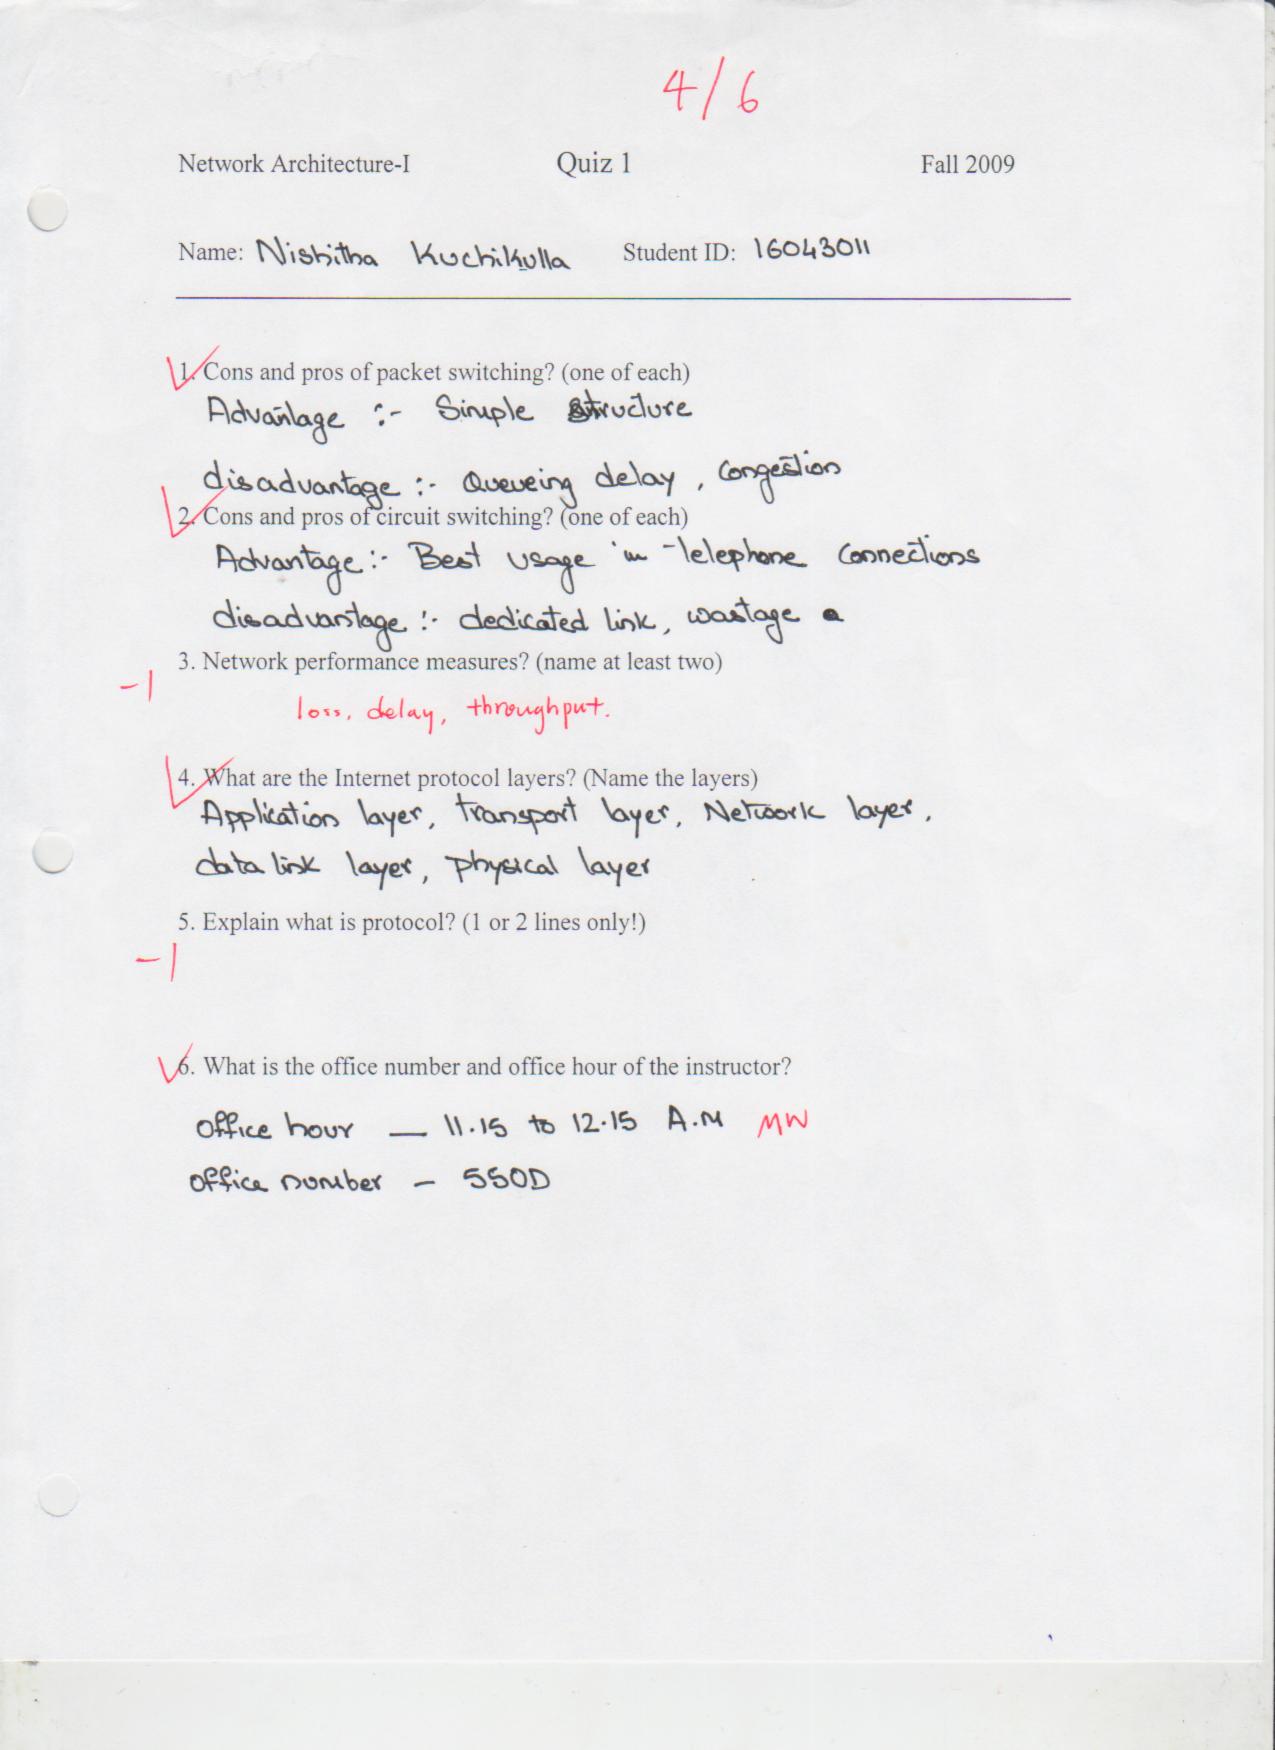 4/6
Network Architecture-I Quiz 1 Fall 2009
Name: Nishitha Kuchikulla Student ID: 16043011
1. Cons and pros of packet switching? (one of each)
Advantage :- Simple structure
disadvantage :- Queueing delay, congestion
2. Cons and pros of circuit switching? (one of each)
Advantage :- Best usage in telephone connections
disadvantage :- dedicated link, wastage
3. Network performance measures? (name at least two)
-1
loss, delay, throughput.
4. What are the Internet protocol layers? (Name the layers)
Application layer, transport layer, Network layer,
data link layer, physical layer
5. Explain what is protocol? (1 or 2 lines only!)
-1
6. What is the office number and office hour of the instructor?
office hour — 11.15 to 12.15 A.M MW
office number - 550D